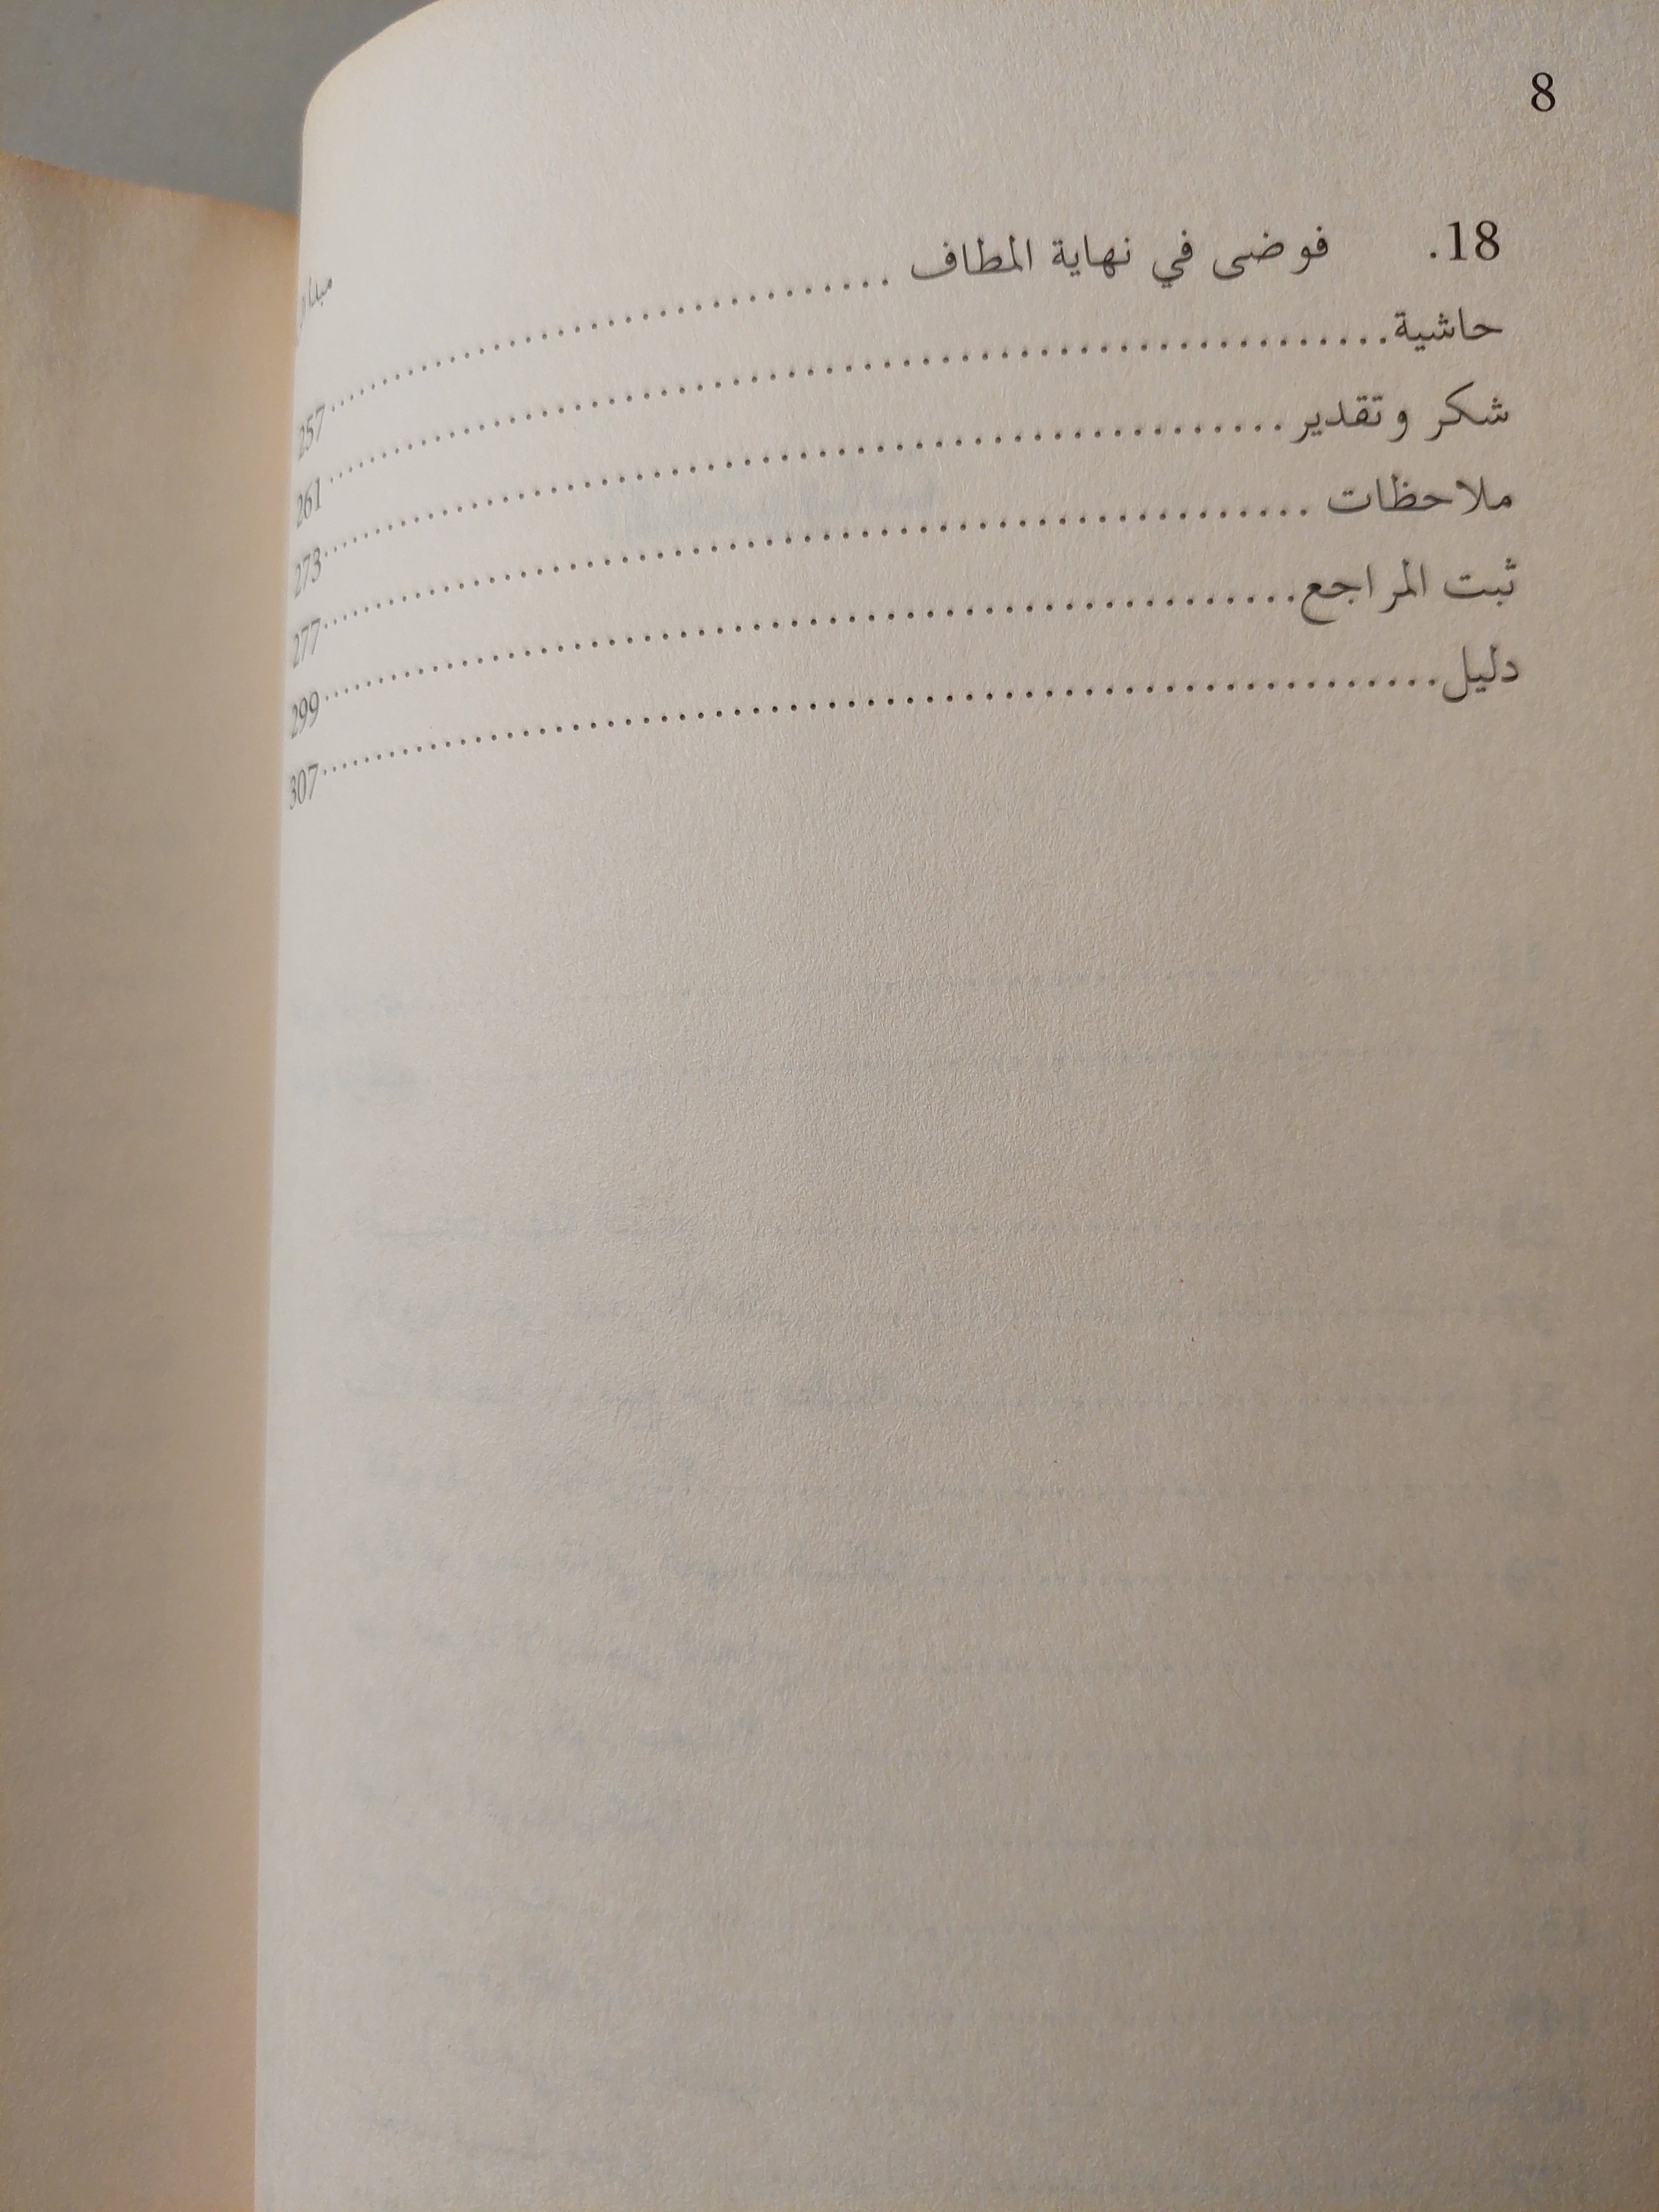 8
18. فوضى في نهاية المطاف ........................................ 257
حاشية........................................ 261
شكر وتقدير........................................ 273
ملاحظات ........................................ 277
ثبت المراجع........................................ 299
دليل........................................ 307